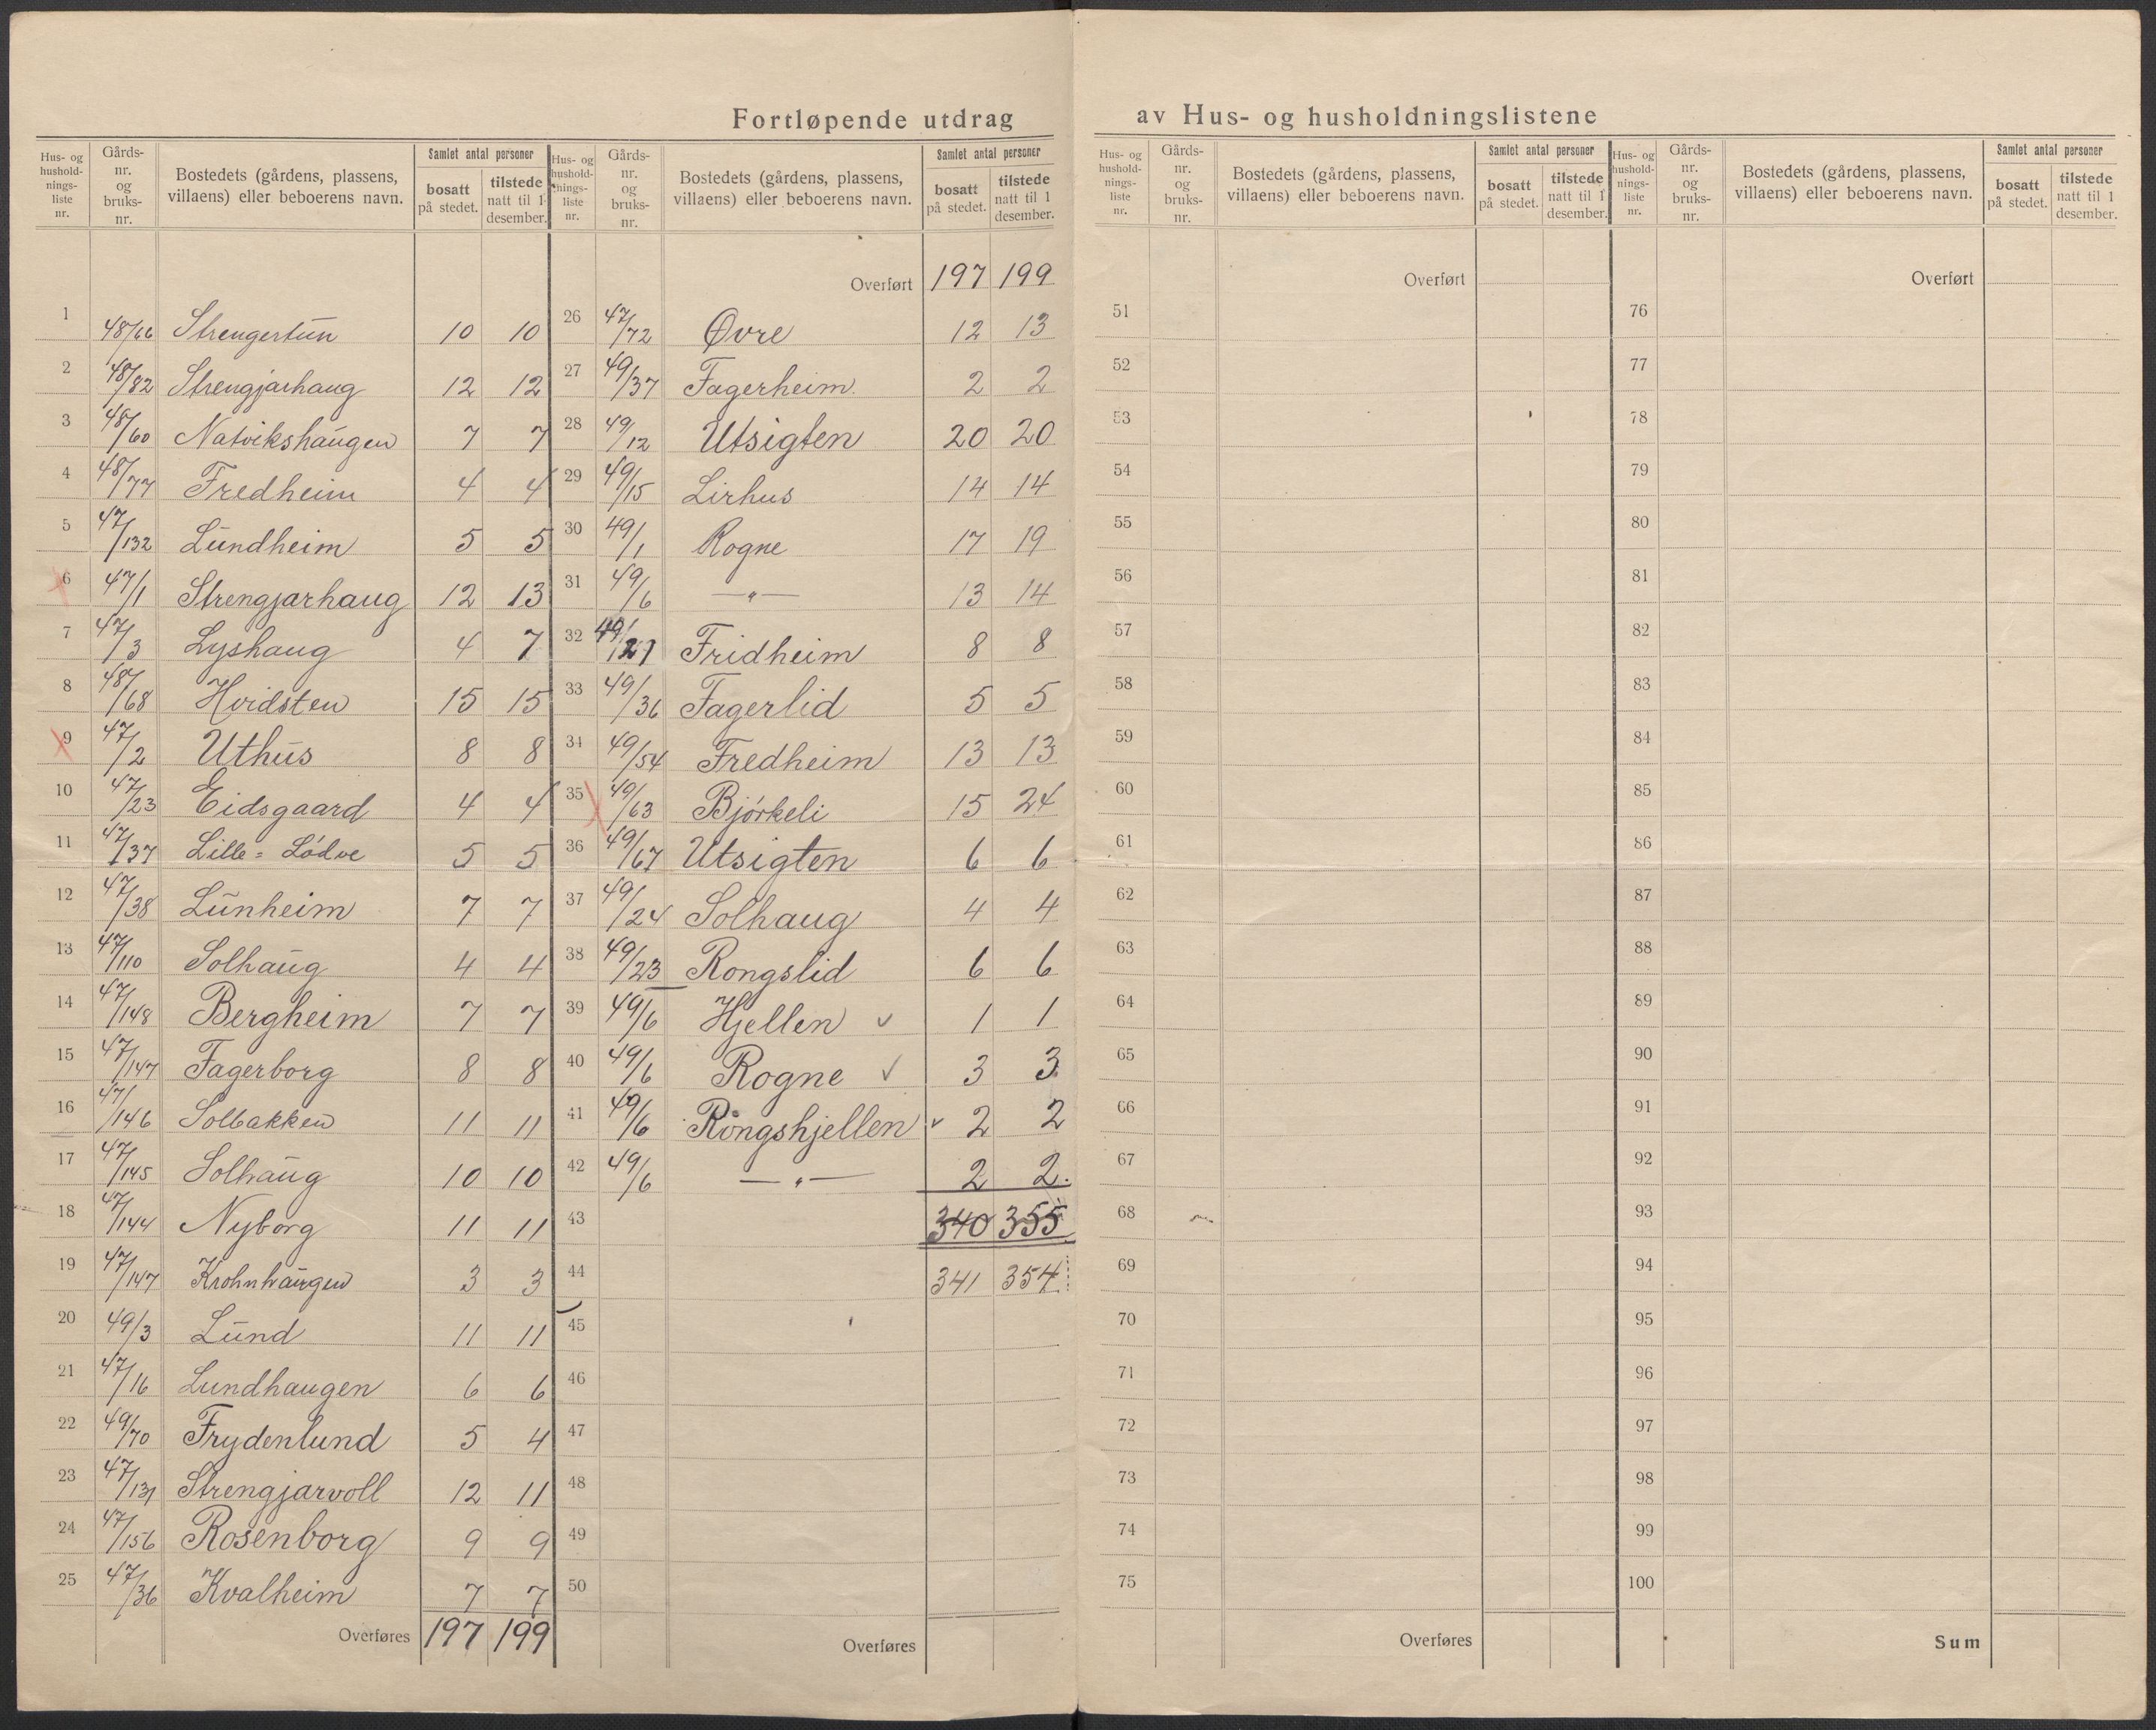 Fortløpende utdrag av Hus- og husholdningslistene
Hus- og hushold-nings-liste nr. | Gårds-nr. og bruks-nr. | Bostedets (gårdens, plassens, villaens) eller beboerens navn. | Samlet antal personer bosatt på stedet. | tilstede natt til 1 desember.
1 48/66 Strengertun 10 10
2 48/82 Strengjarhaug 12 12
3 48/60 Natvikshaugen 7 7
4 48/77 Fredheim 4 4
5 47/132 Lundheim 5 5
6 47/1 Strengjarhaug 12 13
7 47/3 Lyshaug 4 7
8 48/68 Hvidsten 15 15
9 47/2 Uthus 8 8
10 47/23 Eidsgaard 4 4
11 47/37 Lille=Lødve 5 5
12 47/38 Lunheim 7 7
13 47/110 Solhaug 4 4
14 47/148 Bergheim 7 7
15 47/147 Fagerborg 8 8
16 47/146 Solbakken 11 11
17 47/145 Solhaug 10 10
18 47/144 Nyborg 11 11
19 47/147 Krohnhaugen 3 3
20 49/3 Lund 11 11
21 47/16 Lundhaugen 6 6
22 49/70 Frydenlund 5 4
23 47/131 Strengjarvoll 12 11
24 47/156 Rosenborg 9 9
25 47/36 Kvalheim 7 7
Overføres 197 199
Hus- og hushold-nings-liste nr. | Gårds-nr. og bruks-nr. | Bostedets (gårdens, plassens, villaens) eller beboerens navn. | Samlet antal personer bosatt på stedet. | tilstede natt til 1 desember.
Overført 197 199
26 47/72 Øvre 12 13
27 49/37 Fagerheim 2 2
28 49/12 Utsigten 20 20
29 49/15 Lirhus 14 14
30 49/1 Rogne 17 19
31 49/6 —"— 13 14
32 49/27 Fridheim 8 8
33 49/36 Fagerlid 5 5
34 49/54 Fredheim 13 13
35 49/63 Bjørkeli 15 24
36 49/67 Utsigten 6 6
37 49/24 Solhaug 4 4
38 49/23 Rongslid 6 6
39 49/6 Hjellen ✓ 1 1
40 49/6 Rogne ✓ 3 3
41 49/6 Rongshjellen ✓ 2 2
42 49/6 —"— 2 2
43 340 355
44 341 354
45
46
47
48
49
50
Overføres
Hus- og hushold-nings-liste nr. | Gårds-nr. og bruks-nr. | Bostedets (gårdens, plassens, villaens) eller beboerens navn. | Samlet antal personer bosatt på stedet. | tilstede natt til 1 desember.
Overført
51
52
53
54
55
56
57
58
59
60
61
62
63
64
65
66
67
68
69
70
71
72
73
74
75
Overføres
Hus- og hushold-nings-liste nr. | Gårds-nr. og bruks-nr. | Bostedets (gårdens, plassens, villaens) eller beboerens navn. | Samlet antal personer bosatt på stedet. | tilstede natt til 1 desember.
Overført
76
77
78
79
80
81
82
83
84
85
86
87
88
89
90
91
92
93
94
95
96
97
98
99
100
Sum